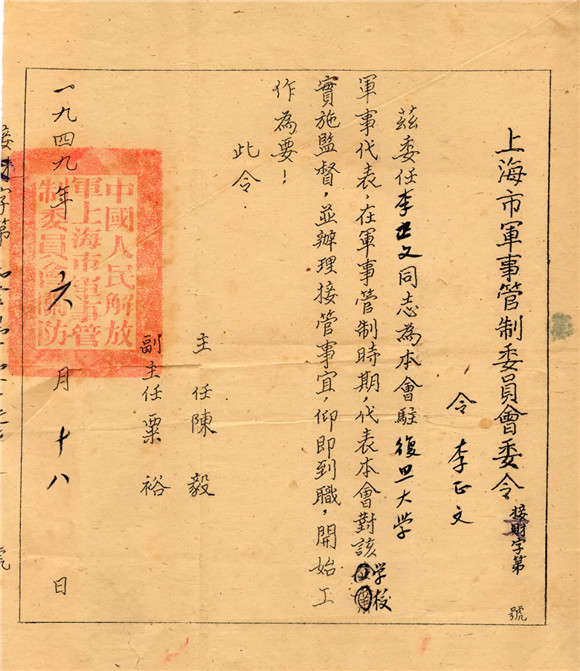 上海市軍事管制委員會委令
接財字第 號
令 李正文
茲委任李正文同志為本會駐復旦大学
軍事代表，在軍事管制時期，代表本會對該学校
實施監督，並辦理接管事宜，仰即到職，開始工
作為要！
此令
主任陳毅
副主任粟裕
一九四九年六月十八日
中國人民解放
軍上海市軍事管
制委員會關防
接 字第 號